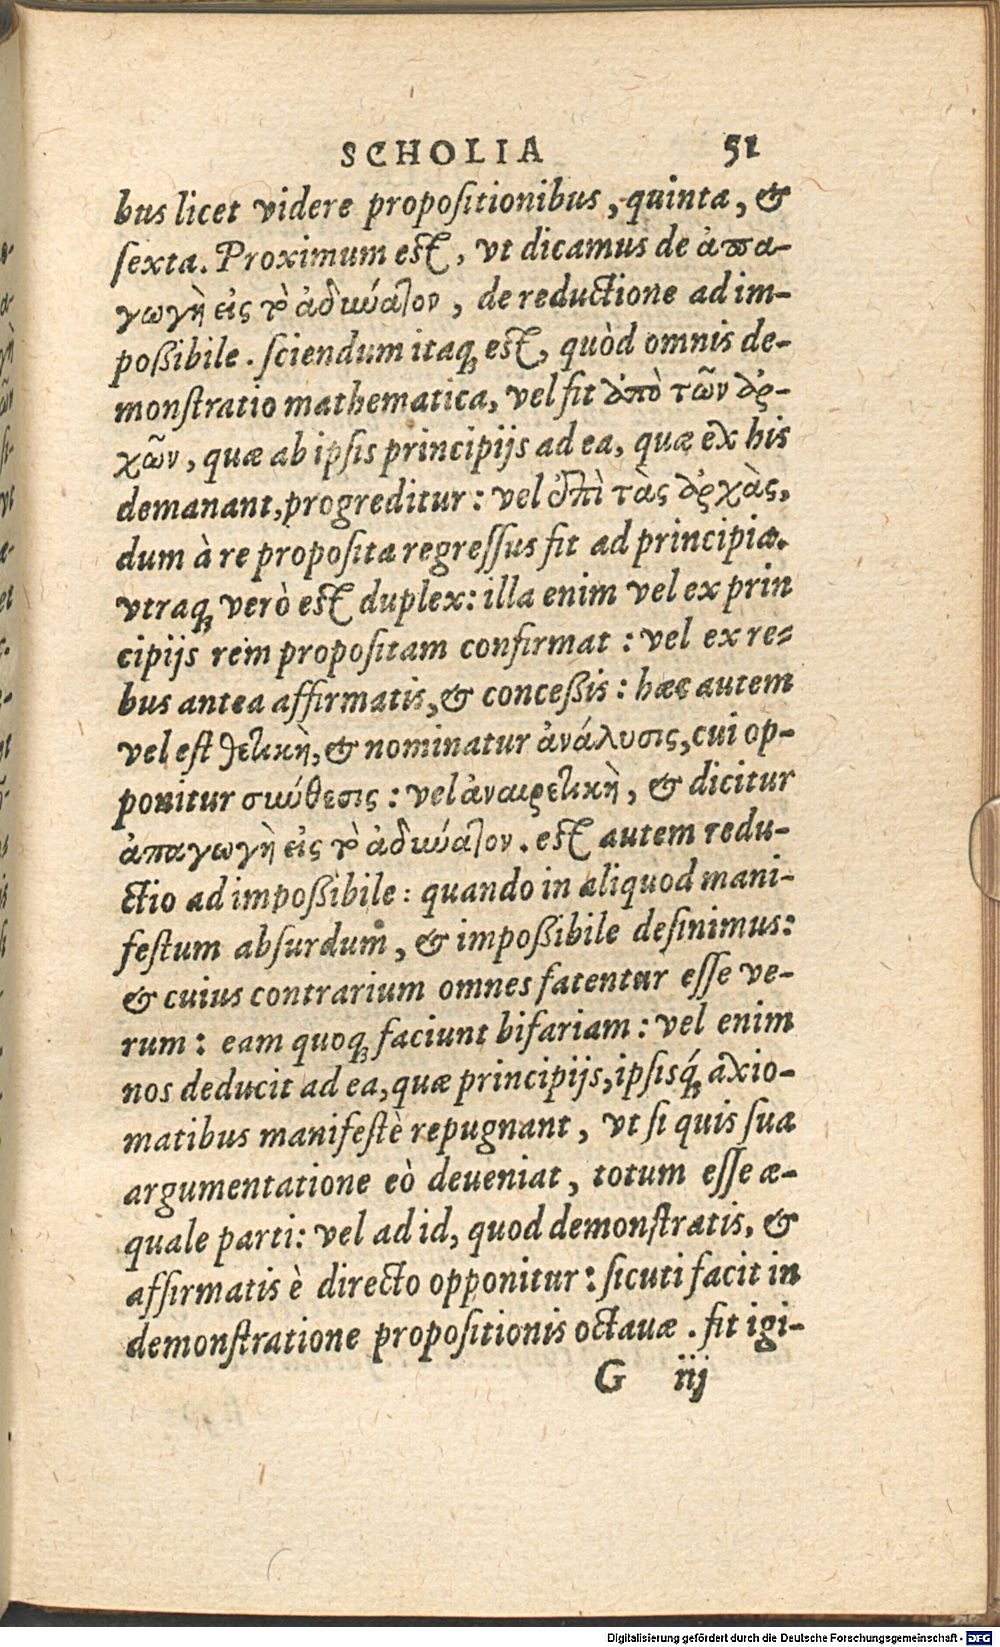 SCHOLIA 51
bus licet videre propoſitionibus, quinta, &
ſexta. Proximum eſt, vt dicamus de ἀπα-
γωγὴ εἰς τὸ ἀδιωύατον, de reductione ad im-
poßibile. ſciendum itaqꝫ eſt, quòd omnis de-
monſtratio mathematica, vel fit ἀπὸ τῶν ἀρ-
χῶν, quæ ab ipſis principijs ad ea, quæ ex his
demanant, progreditur: vel ἐπὶ τὰς ἀρχὰς,
dum à re propoſita regreſſus fit ad principia.
vtraqꝫ verò eſt duplex: illa enim vel ex prin
cipijs rem propoſitam confirmat: vel ex re-
bus antea affirmatis, & conceßis: hæc autem
vel eſt θετικὴ, & nominatur ἀνάλυσις, cui op-
ponitur σιωύθεσις: vel ἀναιρετικὴ, & dicitur
ἀπαγωγὴ εἰς τὸ ἀδιωύατον. eſt autem redu-
ctio ad impoßibile: quando in aliquod mani-
feſtum abſurdum, & impoßibile deſinimus:
& cuius contrarium omnes fatentur eſſe ve-
rum: eam quoqꝫ faciunt bifariam: vel enim
nos deducit ad ea, quæ principijs, ipſisq́ꝫ axio-
matibus manifeſtè repugnant, vt ſi quis ſua
argumentatione eò deueniat, totum eſſe æ-
quale parti: vel ad id, quod demonſtratis, &
affirmatis è directo opponitur: ſicuti facit in
demonſtratione propoſitionis octauæ. fit igi-
G iij
Digitalisierung gefördert durch die Deutsche Forschungsgemeinschaft - DFG